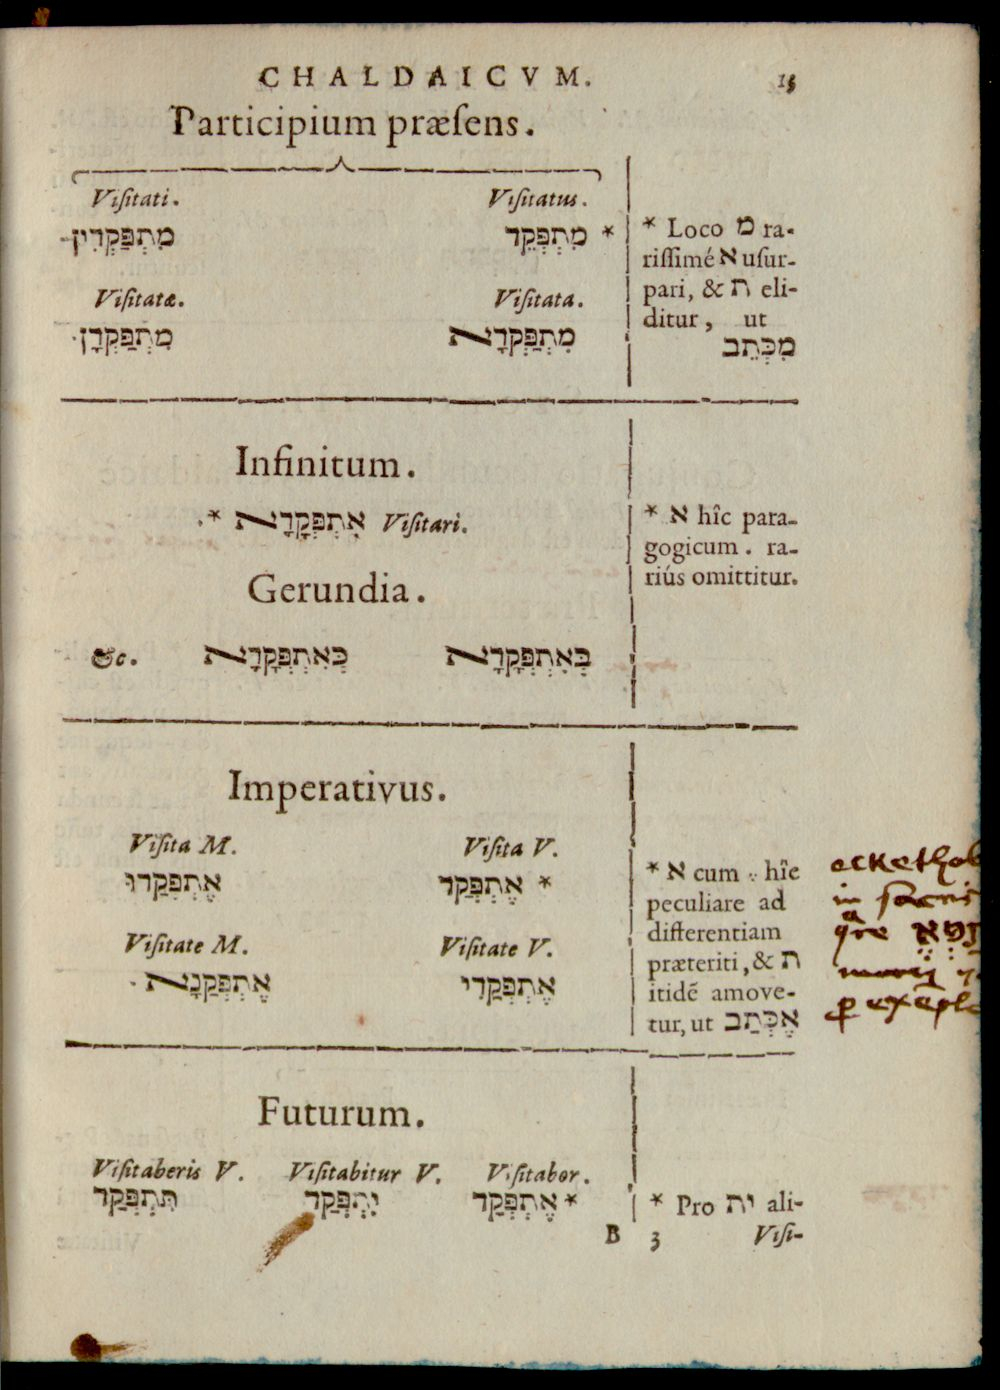 CHALDAICVM. 13
Participium præsens.
Visitati. Visitatus.
* מִתְפְּקֵד מִתְפַּקְדִין
Visitatæ. Visitata.
מִתְפַּקְדָא מִתְפַּקְדָן
* Loco מ ra-
rissimé א usur-
pari, & ת eli-
ditur, ut
מִכְּתֵב
Infinitum.
* אִתְפְּקָדָא Visitari.
* א hîc para-
gogicum. ra-
riús omittitur.
Gerundia.
בְּאִתְפְּקָדָא כְּאִתְפְּקָדָא &c.
Imperativus.
Visita M. Visita V.
* אֶתְפְּקַד אֶתְפְּקַדוּ
Visitate M. Visitate V.
אֶתְפְּקַדִי אֶתְפְּקַנָא
* א cum ֶ hîc
peculiare ad
differentiam
præteriti, & ת
itidē amove-
tur, ut אֶכְּתַב
in sacris
Futurum.
Visitaberis V. Visitabitur V. Visitabor.
* אֶתְפְּקַד יִתְפְּקַד תִּתְפְּקַד
* Pro ית ali-
B 3 Visi-